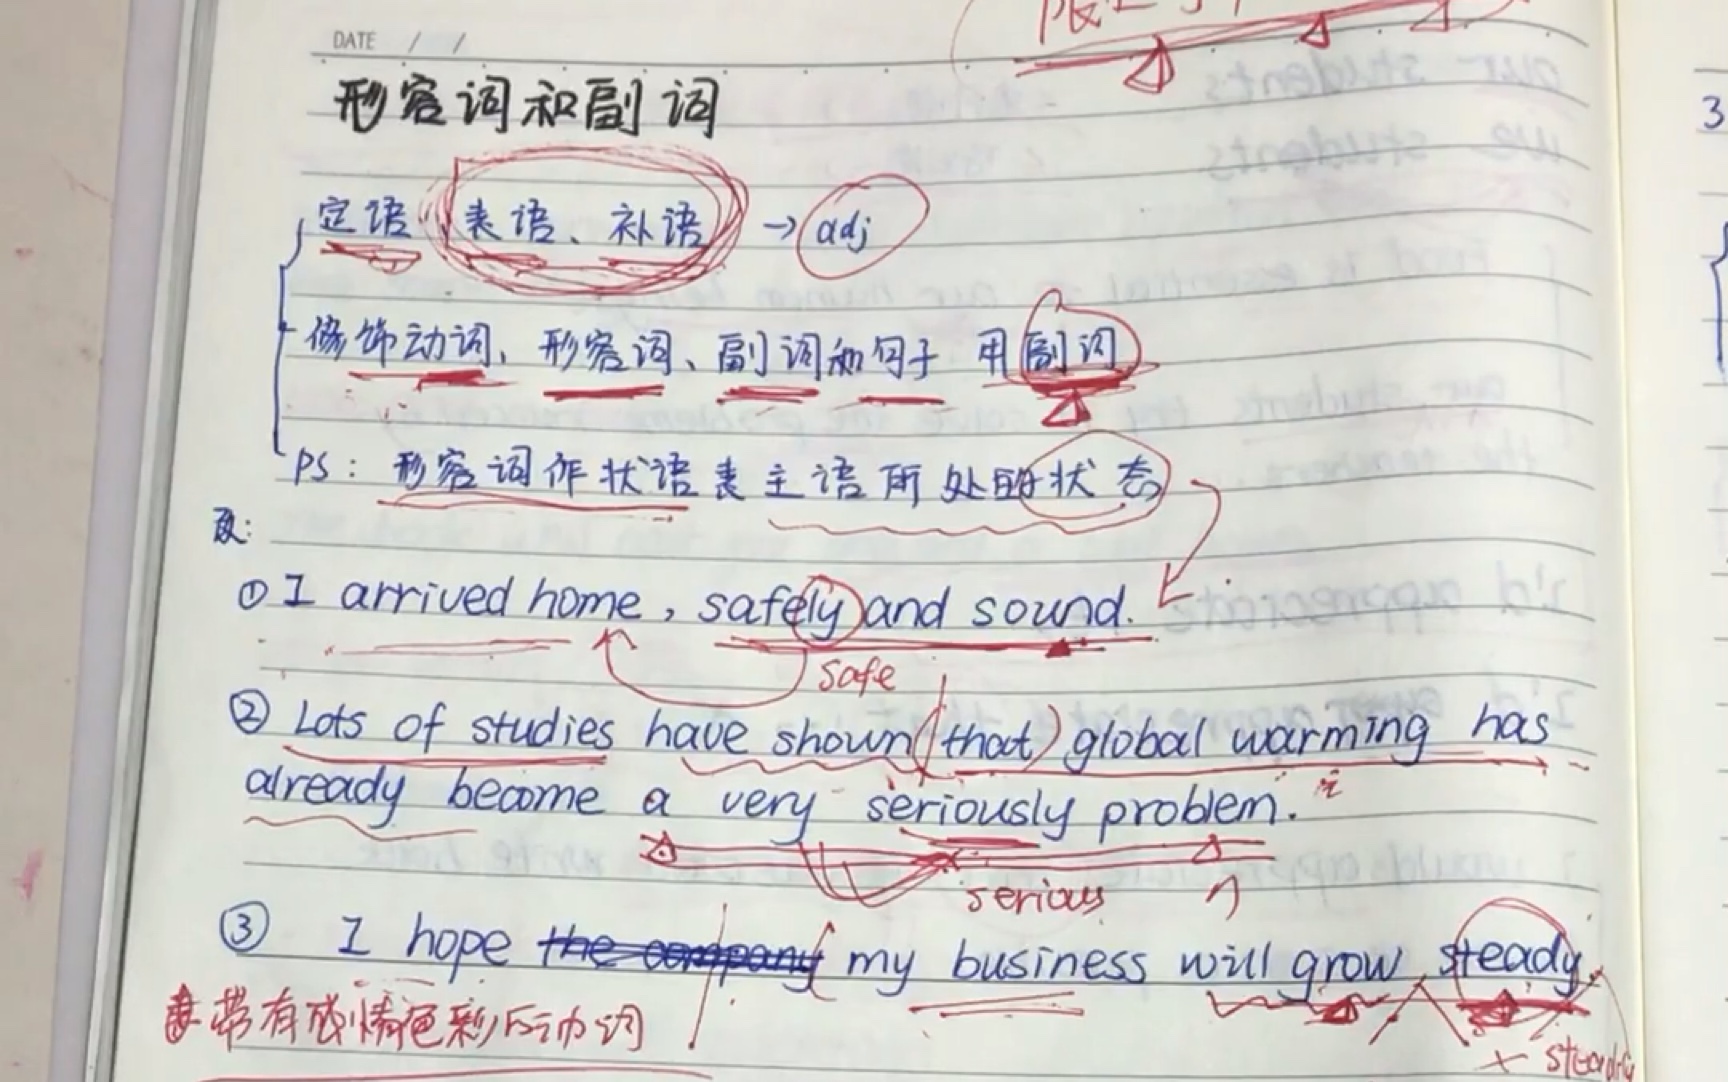 DATE / /
形容词和副词
定语、表语、补语 → adj
修饰动词、形容词、副词和句子 用副词
PS: 形容词作状语表主语所处的状态
改:
① I arrived home, safely and sound.
safe
② Lots of studies have shown (that) global warming has
already become a very seriously problem.
serious
③ I hope the company my business will grow steady.
带有感情色彩的动词
steadily
3